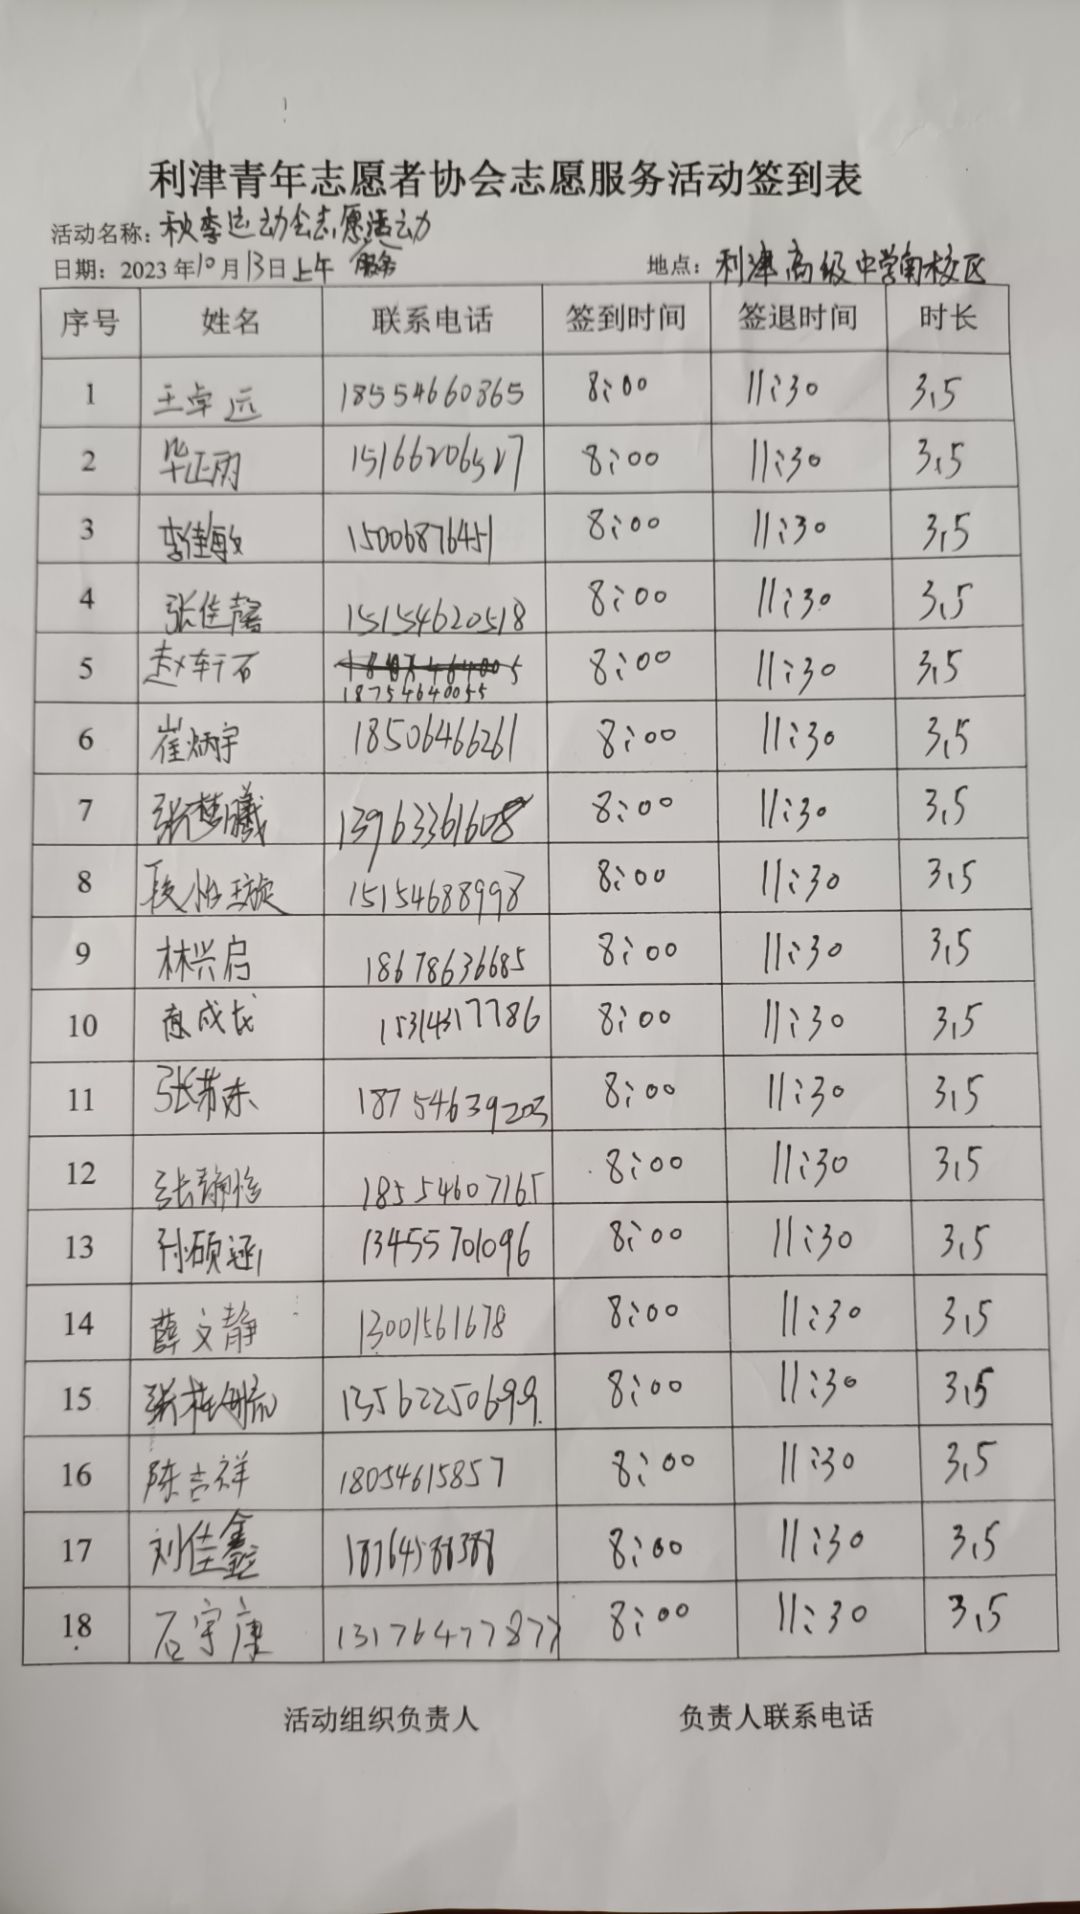 利津青年志愿者协会志愿服务活动签到表
活动名称：秋季运动会志愿服务活动
日期：2023年10月13日上午 地点：利津高级中学南校区
序号 姓名 联系电话 签到时间 签退时间 时长
1 王卓远 18554660365 8:00 11:30 3.5
2 毕正雨 15166206527 8:00 11:30 3.5
3 李佳敏 15006876451 8:00 11:30 3.5
4 张佳馨 15154620518 8:00 11:30 3.5
5 赵轩石 18754640055 8:00 11:30 3.5
6 崔炳宇 18506466261 8:00 11:30 3.5
7 张梦曦 13963361608 8:00 11:30 3.5
8 15154688998 8:00 11:30 3.5
9 林兴启 18678636685 8:00 11:30 3.5
10 15314317786 8:00 11:30 3.5
11 张苏东 18754639203 8:00 11:30 3.5
12 张静怡 18554607165 8:00 11:30 3.5
13 孙硕涵 13455701096 8:00 11:30 3.5
14 薛文静 13001561678 8:00 11:30 3.5
15 13562250699 8:00 11:30 3.5
16 陈吉祥 18054615857 8:00 11:30 3.5
17 刘佳鑫 18764588388 8:00 11:30 3.5
18 石宇康 13176477877 8:00 11:30 3.5
活动组织负责人 负责人联系电话